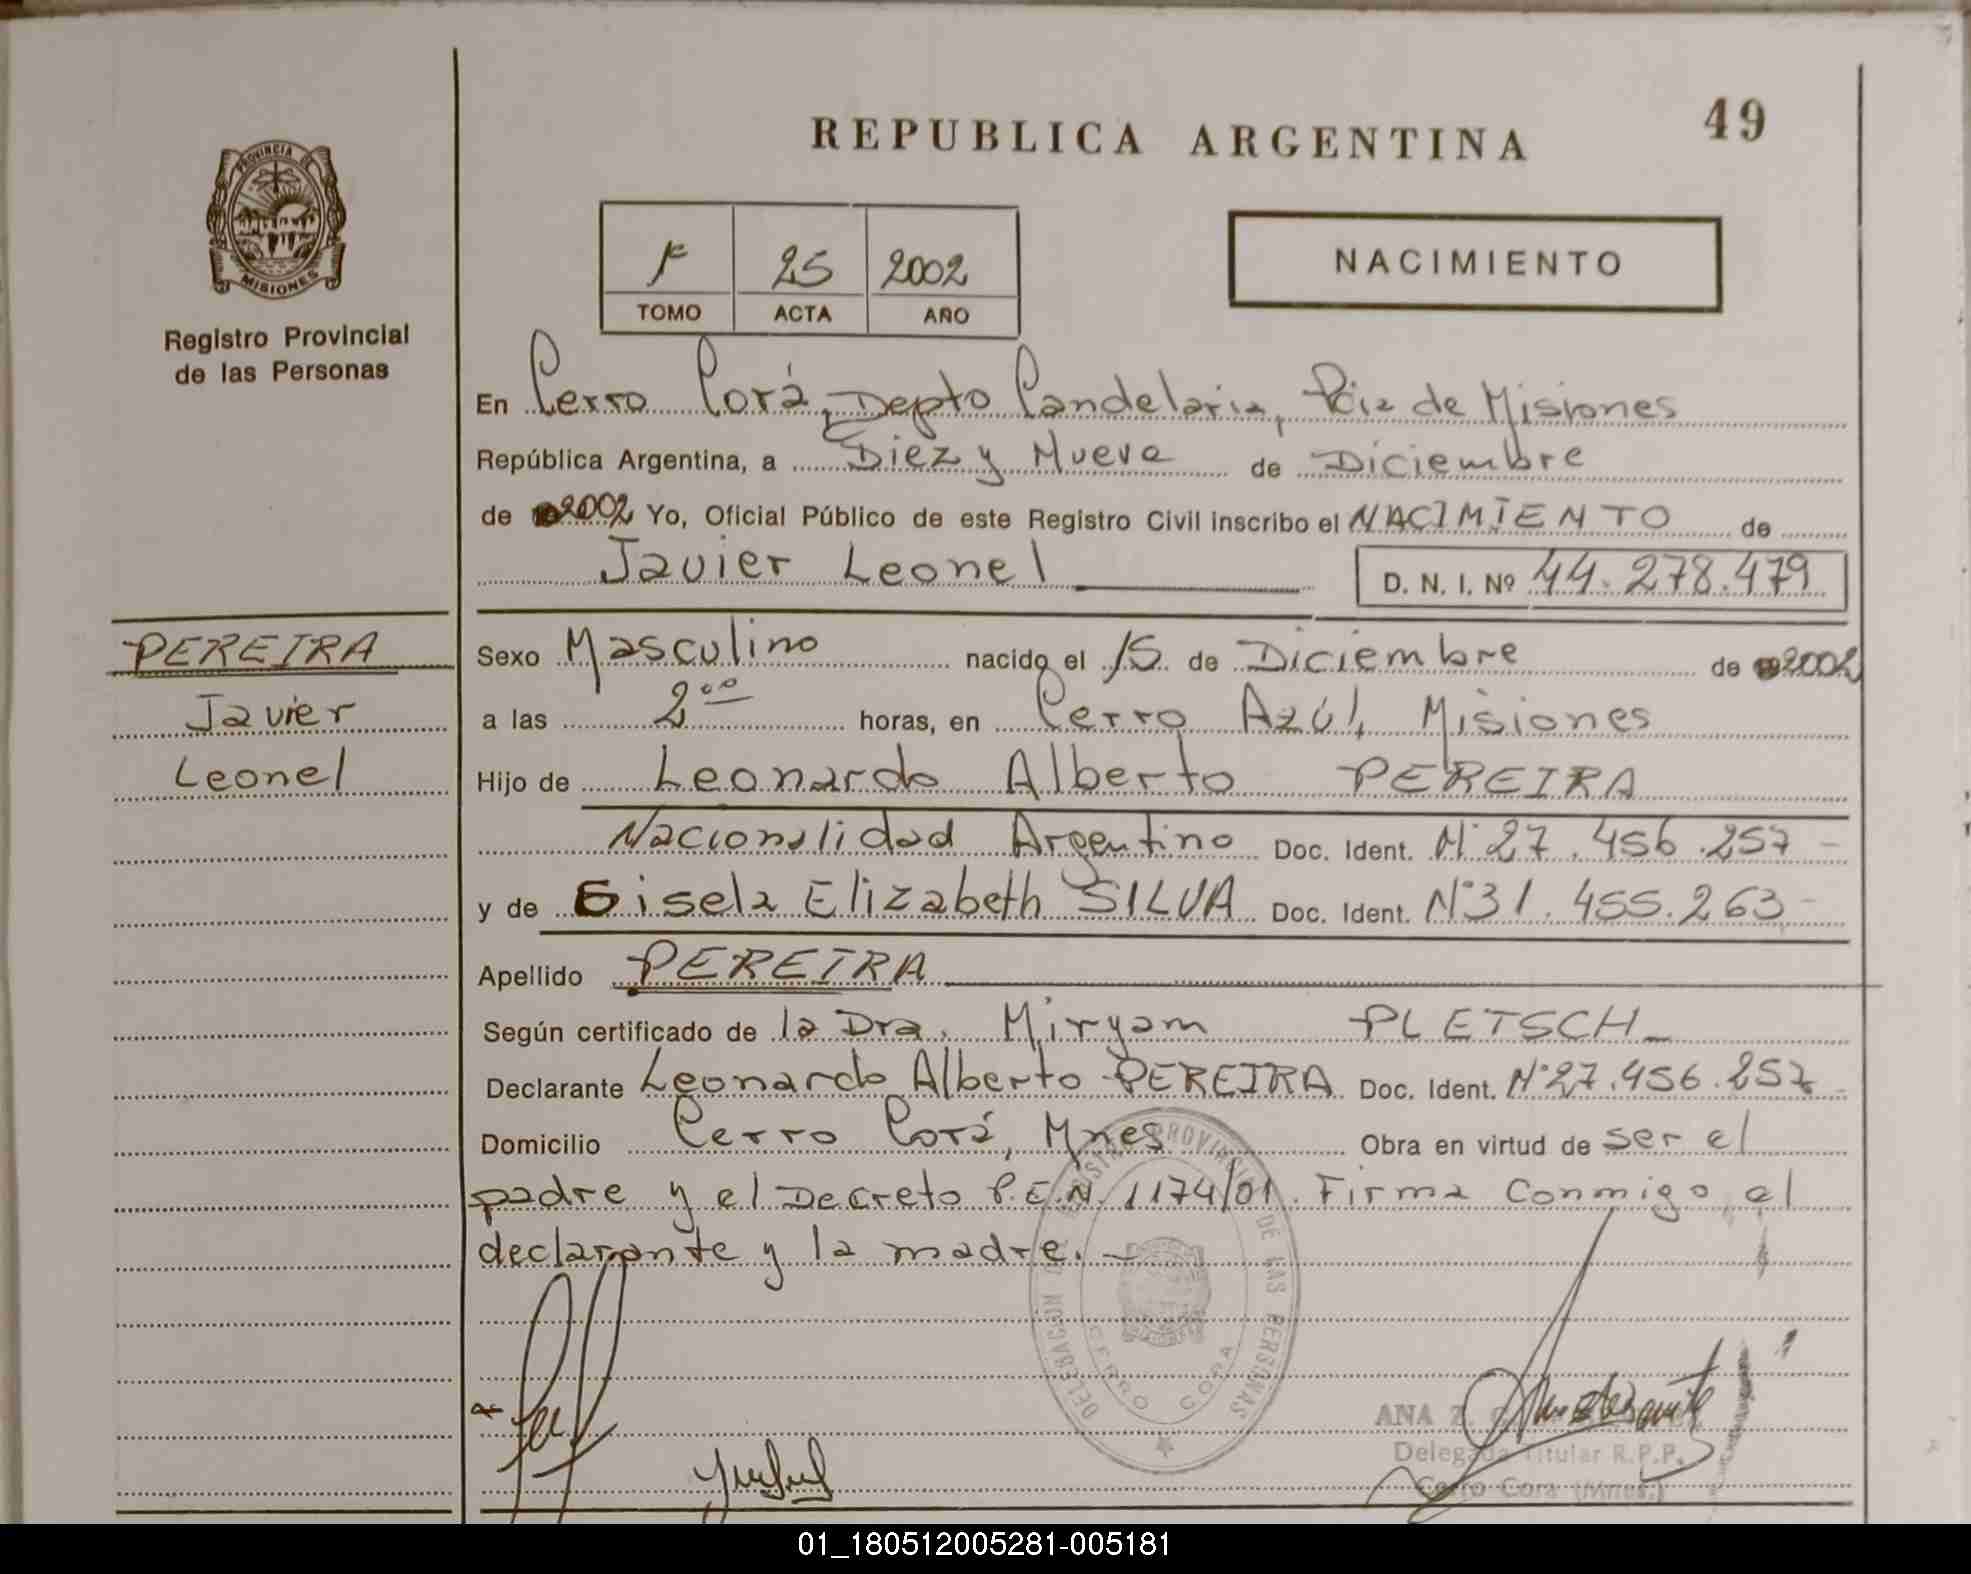 49
REPUBLICA ARGENTINA
PROVINCIA DE
MISIONES
Registro Provincial
de las Personas
1º 25 2002
TOMO ACTA AÑO
NACIMIENTO
En Cerro Corá, Depto Candelaria, Pcia de Misiones
República Argentina, a Diez y Nueve de Diciembre
de 2002 Yo, Oficial Público de este Registro Civil inscribo el NACIMIENTO de
Javier Leonel D. N. I. Nº 44.278.479
PEREIRA
Javier
Leonel
Sexo Masculino nacido el 15 de Diciembre de 2002
a las 2 00 horas, en Cerro Azúl, Misiones
Hijo de Leonardo Alberto PEREIRA
Nacionalidad Argentino Doc. Ident. Nº 27.456.257-
y de Gisela Elizabeth SILVA Doc. Ident. Nº 31.455.263-
Apellido PEREIRA
Según certificado de la Dra. Miryam PLETSCH_
Declarante Leonardo Alberto PEREIRA Doc. Ident. Nº 27.456.257-
Domicilio Cerro Corá, Mnes Obra en virtud de ser el
padre y el Decreto P.E.N. 1174/01. Firma conmigo el
declarante y la madre.-
DELEGACION DEL REGISTRO PROVINCIAL DE LAS PERSONAS
CERRO CORA
ANA Z.
Delegada Titular R.P.P.
Cerro Cora (Mnes.)
01_180512005281-005181